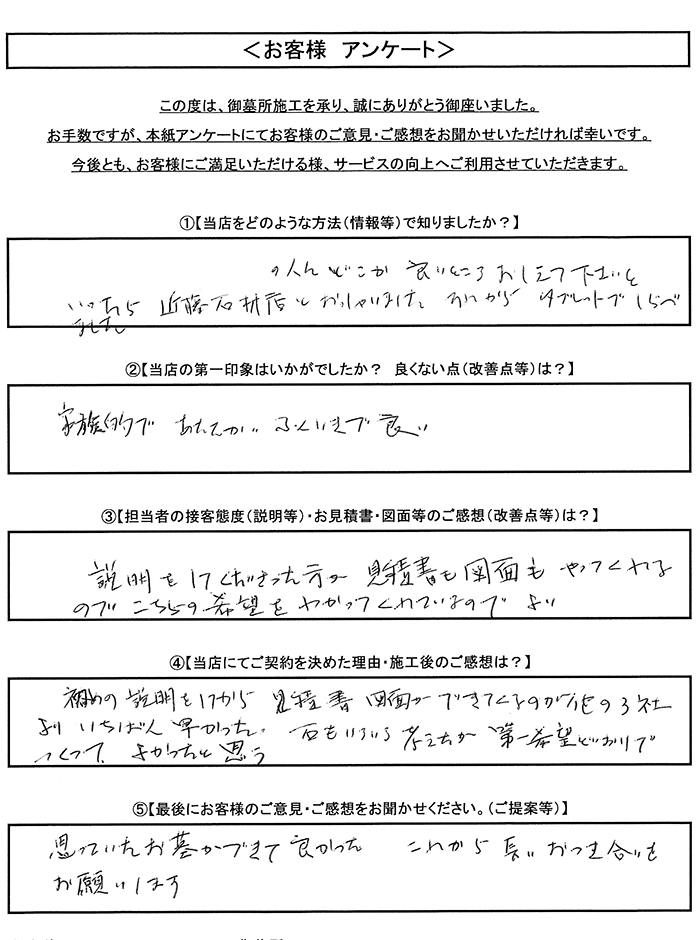 ＜お客様 アンケート＞
この度は、御墓所施工を承り、誠にありがとう御座いました。
お手数ですが、本紙アンケートにてお客様のご意見・ご感想をお聞かせいただければ幸いです。
今後とも、お客様にご満足いただける様、サービスの向上へご利用させていただきます。
①【当店をどのような方法（情報等）で知りましたか？】
の人に どこか 良いところ おしえて下さいと
いったら 近藤石材店とおっしゃいました それから タブレットで しらべ
ました
②【当店の第一印象はいかがでしたか？ 良くない点（改善点等）は？】
家族的で あたたかい ふんいきで 良い
③【担当者の接客態度（説明等）・お見積書・図面等のご感想（改善点等）は？】
説明を してくださった方が 見積書も 図面も やってくれる
ので こちらの希望を わかってくれているので よい
④【当店にてご契約を決めた理由・施工後のご感想は？】
初めの 説明をしてから 見積書 図面ができてくるのが 他の3社
より いちばん 早かった。 石もいろいろ 考えたが 第一希望どおりで
つくって よかったと 思う
⑤【最後にお客様のご意見・ご感想をお聞かせください。（ご提案等）】
思っていたお墓ができて 良かった これから 長い おつき合いを
お願いします